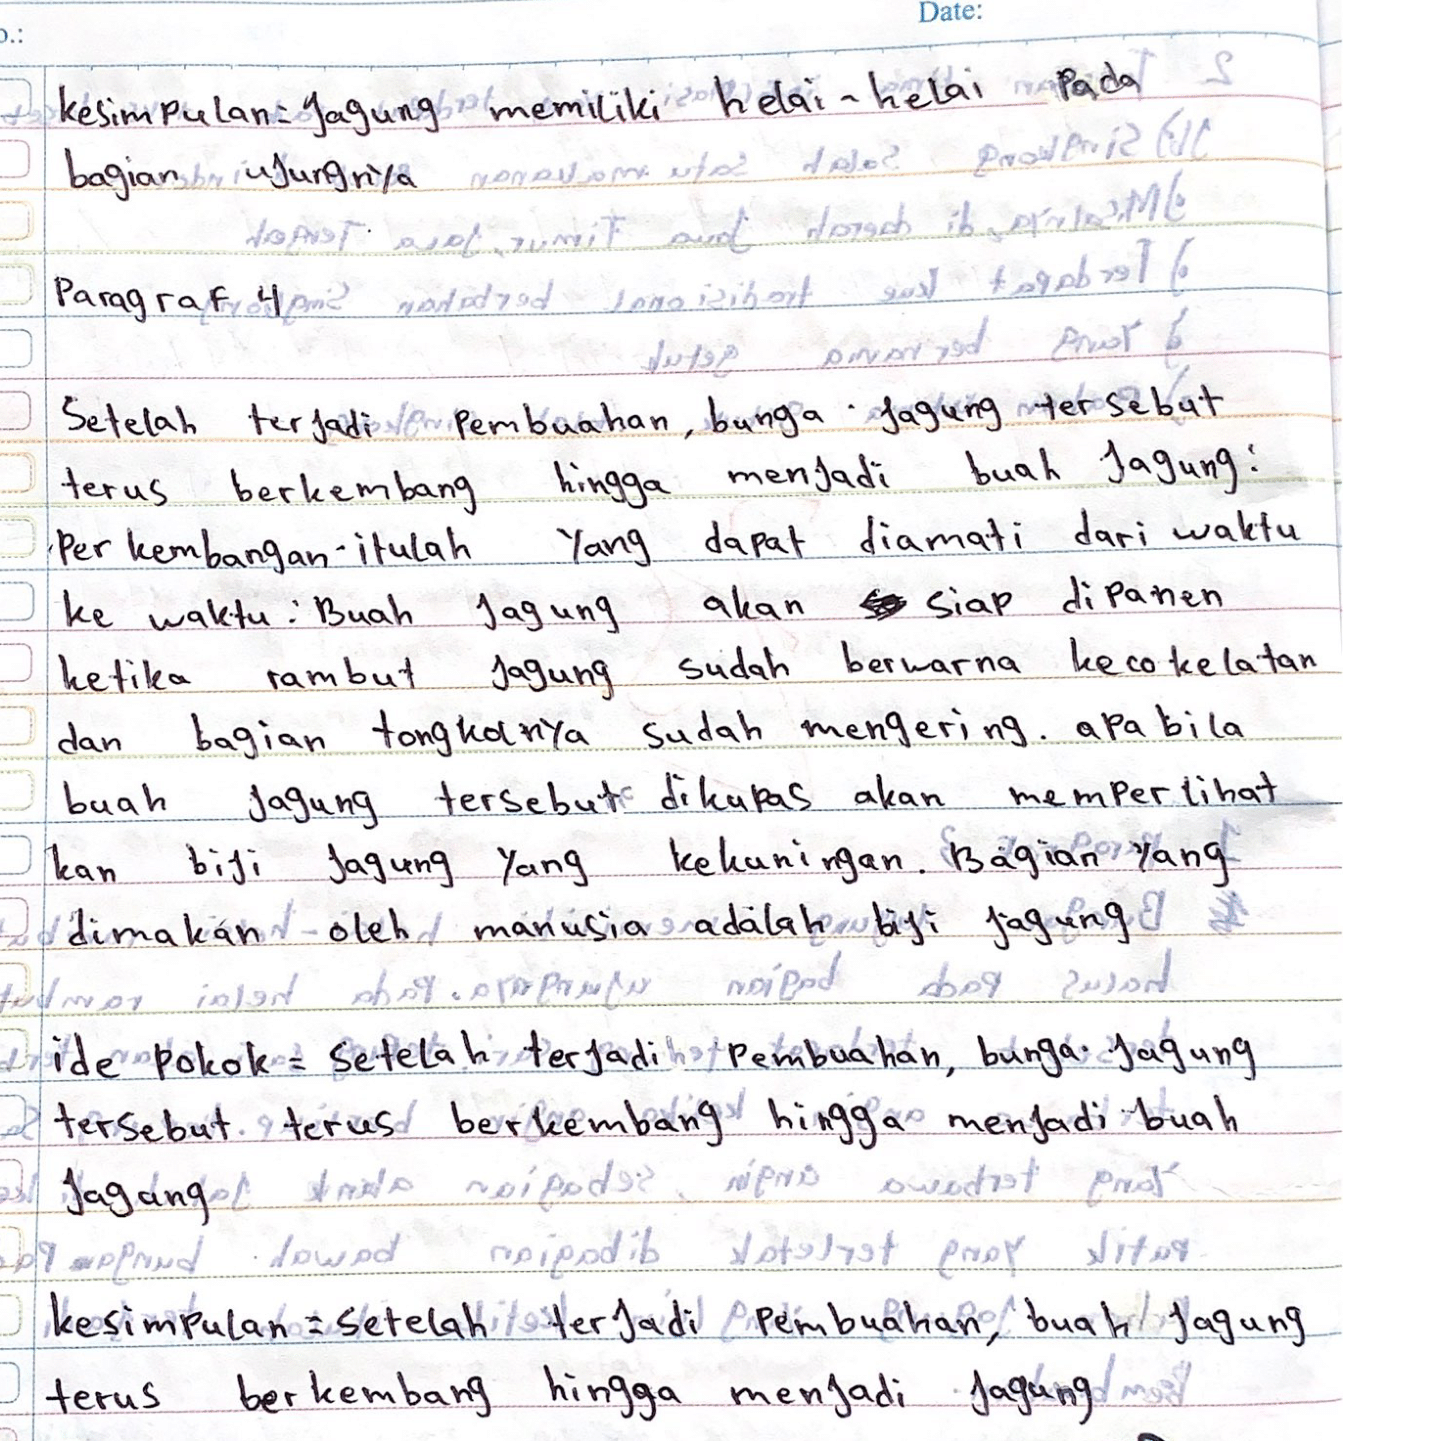 Date:
o.:
kesimpulan = jagung memiliki helai - helai pada
bagian ujungnya
Paragraf 4
Setelah terjadi pembuahan, bunga jagung tersebut
terus berkembang hingga menjadi buah jagung.
Perkembangan itulah yang dapat diamati dari waktu
ke waktu. Buah jagung akan siap dipanen
ketika rambut jagung sudah berwarna kecokelatan
dan bagian tongkolnya sudah mengering. apabila
buah jagung tersebut dikupas akan memperlihat
kan biji jagung yang kekuningan. Bagian yang
dimakan oleh manusia adalah biji jagung
ide pokok = setelah terjadi pembuahan, bunga jagung
tersebut terus berkembang hingga menjadi buah
jagang
kesimpulan = setelah terjadi pembuahan, buah jagung
terus berkembang hingga menjadi jagung